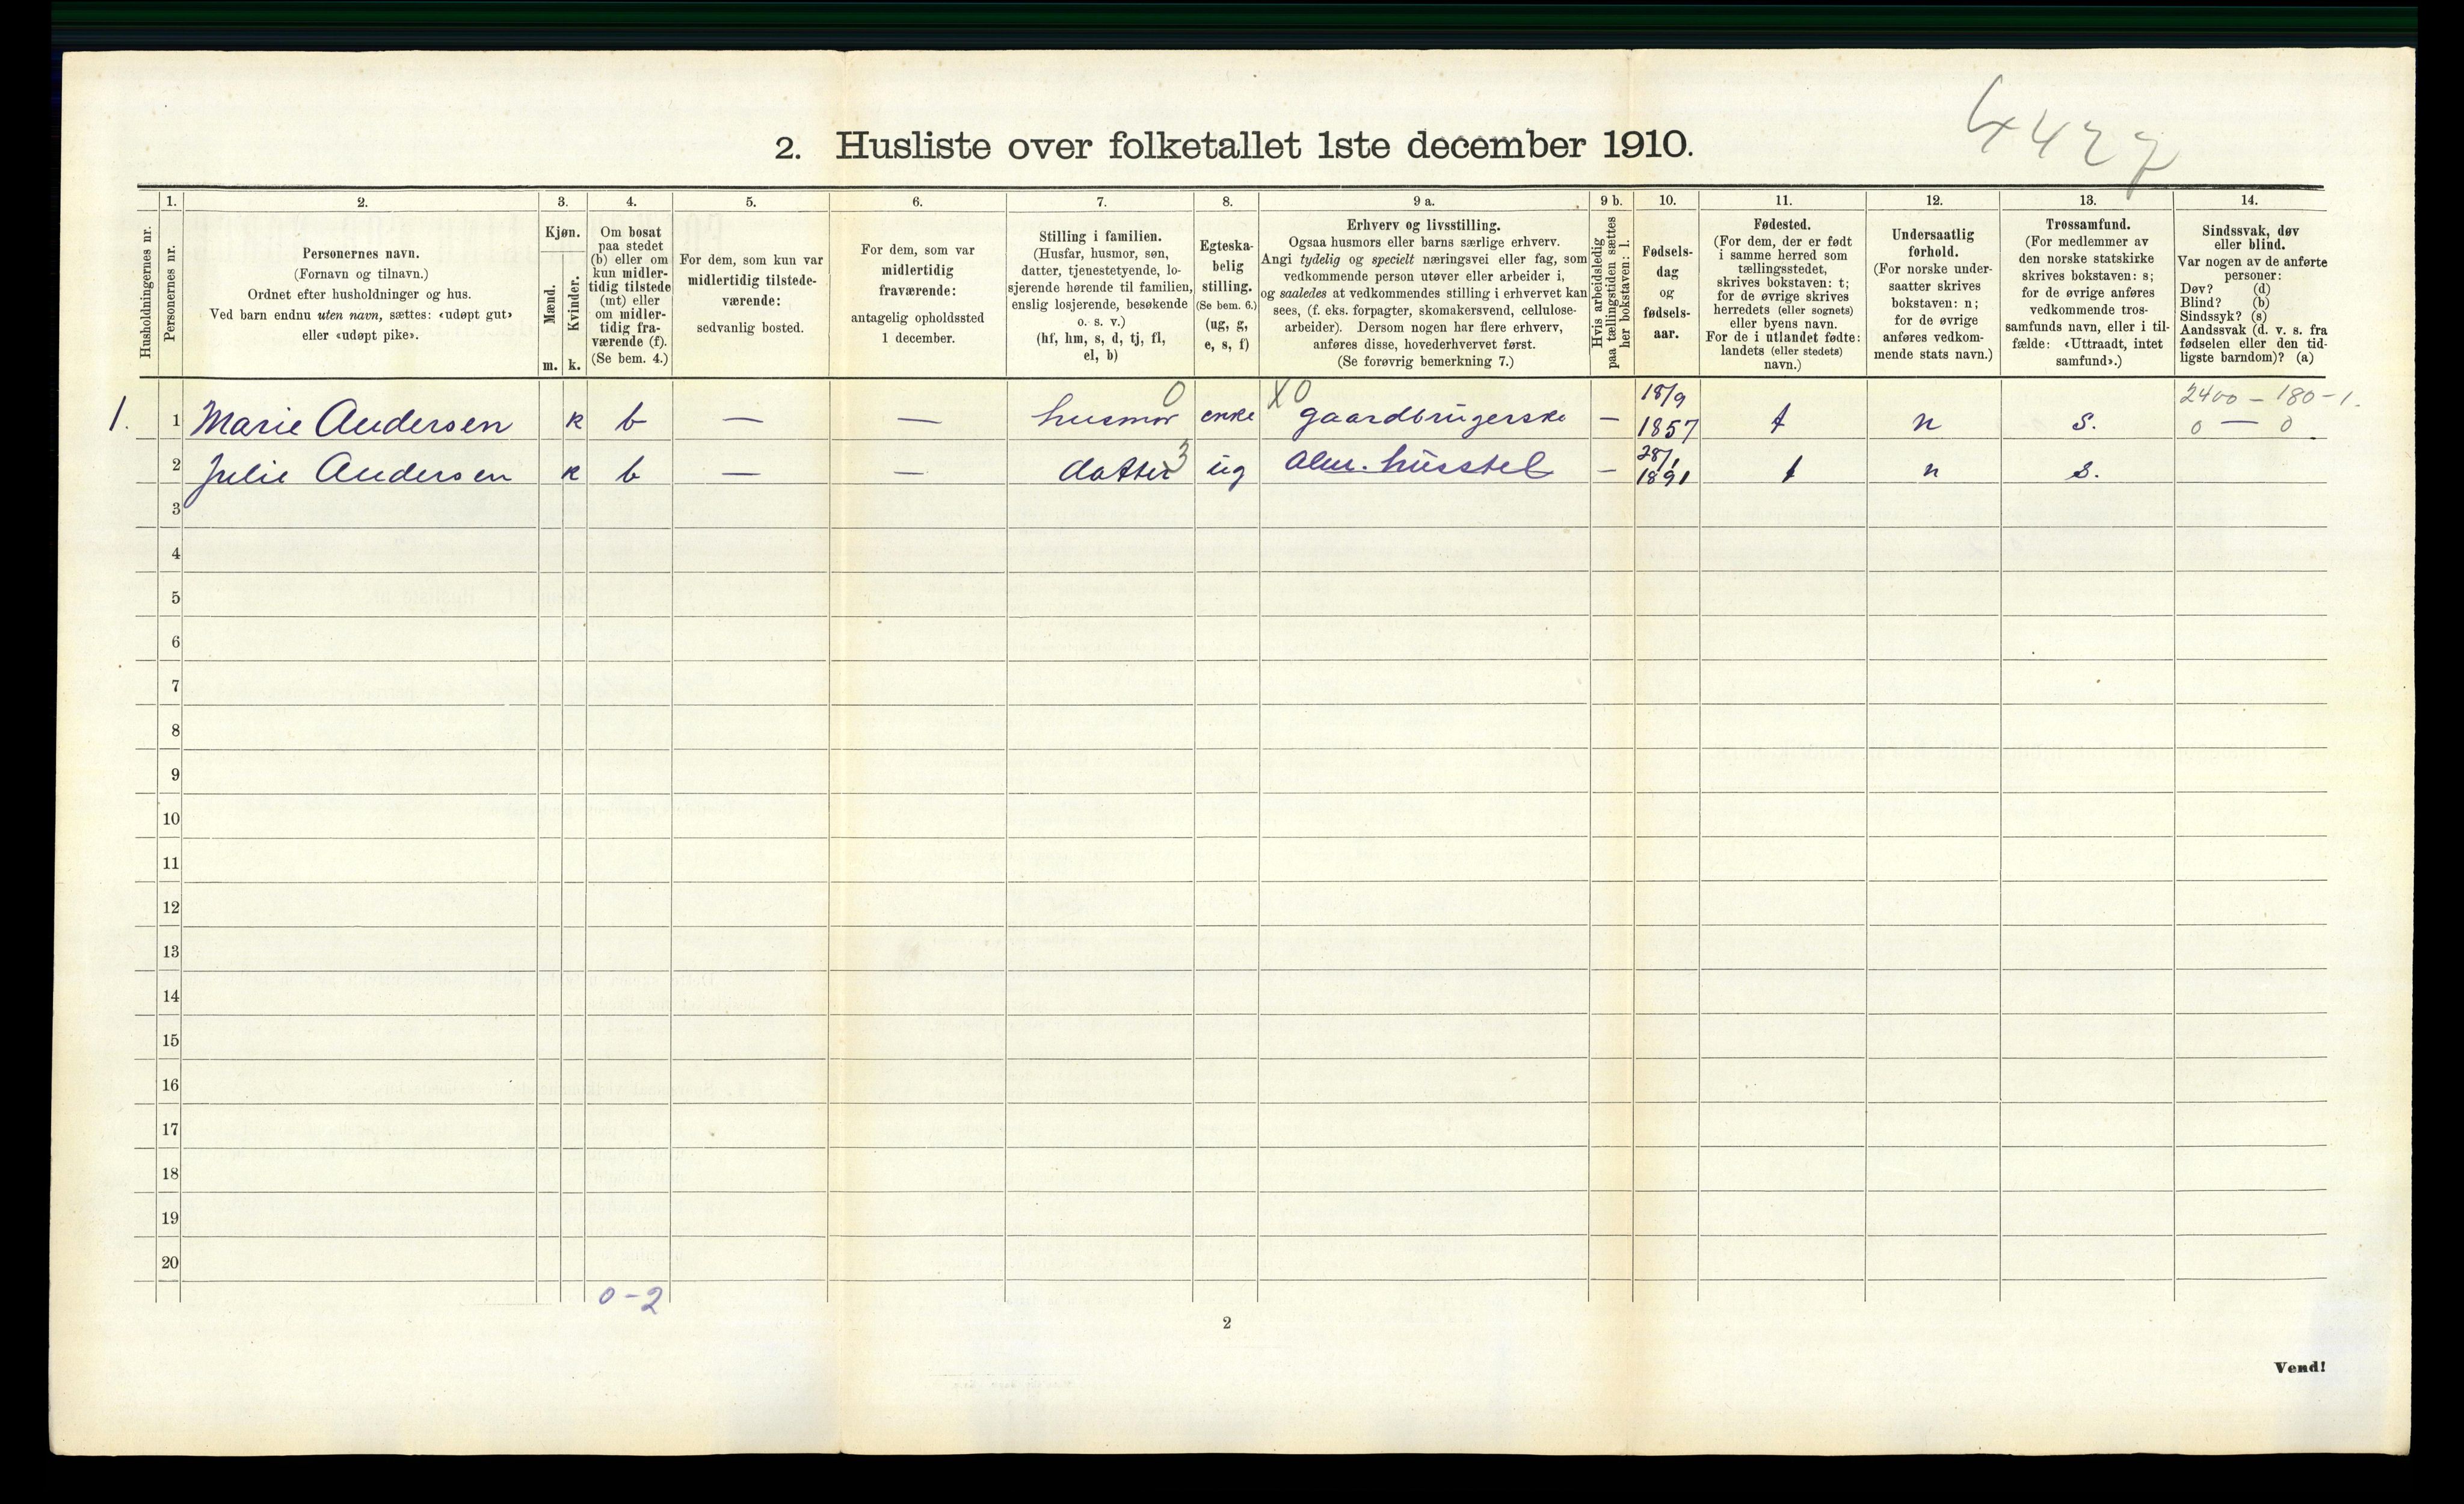 4427
2. Husliste over folketallet 1ste december 1910.
Husholdningernes nr.
1.
Personernes nr.
2.
Personernes navn.
(Fornavn og tilnavn.)
Ordnet efter husholdninger og hus.
Ved barn endnu uten navn, sættes: «udøpt gut»
eller «udøpt pike».
3.
Kjøn.
Mænd.
Kvinder.
m. k.
4.
Om bosat
paa stedet
(b) eller om
kun midler-
tidig tilstede
(mt) eller
om midler-
tidig fra-
værende (f).
(Se bem. 4.)
5.
For dem, som kun var
midlertidig tilstede-
værende:
sedvanlig bosted.
6.
For dem, som var
midlertidig
fraværende:
antagelig opholdssted
1 december.
7.
Stilling i familien.
(Husfar, husmor, søn,
datter, tjenestetyende, lo-
sjerende hørende til familien,
enslig losjerende, besøkende
o. s. v.)
(hf, hm, s, d, tj, fl,
el, b)
8.
Egteska-
belig
stilling.
(Se bem. 6.)
(ug, g,
e, s, f)
9 a.
Erhverv og livsstilling.
Ogsaa husmors eller barns særlige erhverv.
Angi tydelig og specielt næringsvei eller fag, som
vedkommende person utøver eller arbeider i,
og saaledes at vedkommendes stilling i erhvervet kan
sees, (f. eks. forpagter, skomakersvend, cellulose-
arbeider). Dersom nogen har flere erhverv,
anføres disse, hovederhvervet først.
(Se forøvrig bemerkning 7.)
9 b.
Hvis arbeidsledig
paa tællingstiden sættes
her bokstaven: l.
10.
Fødsels-
dag
og
fødsels-
aar.
11.
Fødested.
(For dem, der er født
i samme herred som
tællingsstedet,
skrives bokstaven: t;
for de øvrige skrives
herredets (eller sognets)
eller byens navn.
For de i utlandet fødte:
landets (eller stedets)
navn.)
12.
Undersaatlig
forhold.
(For norske under-
saatter skrives
bokstaven: n;
for de øvrige
anføres vedkom-
mende stats navn.)
13.
Trossamfund.
(For medlemmer av
den norske statskirke
skrives bokstaven: s;
for de øvrige anføres
vedkommende tros-
samfunds navn, eller i til-
fælde: «Uttraadt, intet
samfund».)
14.
Sindssvak, døv
eller blind.
Var nogen av de anførte
personer:
Døv? (d)
Blind? (b)
Sindssyk? (s)
Aandssvak (d. v. s. fra
fødselen eller den tid-
ligste barndom)? (a)
0 X0 18/9 2400 - 180 - 1.
1. 1 Marie Andersen k b — — husmor enke gaardbrugerske — 1857 t n s. 0 — 0
3 28/1
2 Julie Andersen k b — — datter ug alm. husstel — 1891 t n s.
3
4
5
6
7
8
9
10
11
12
13
14
15
16
17
18
19
20
0 - 2
2
Vend!